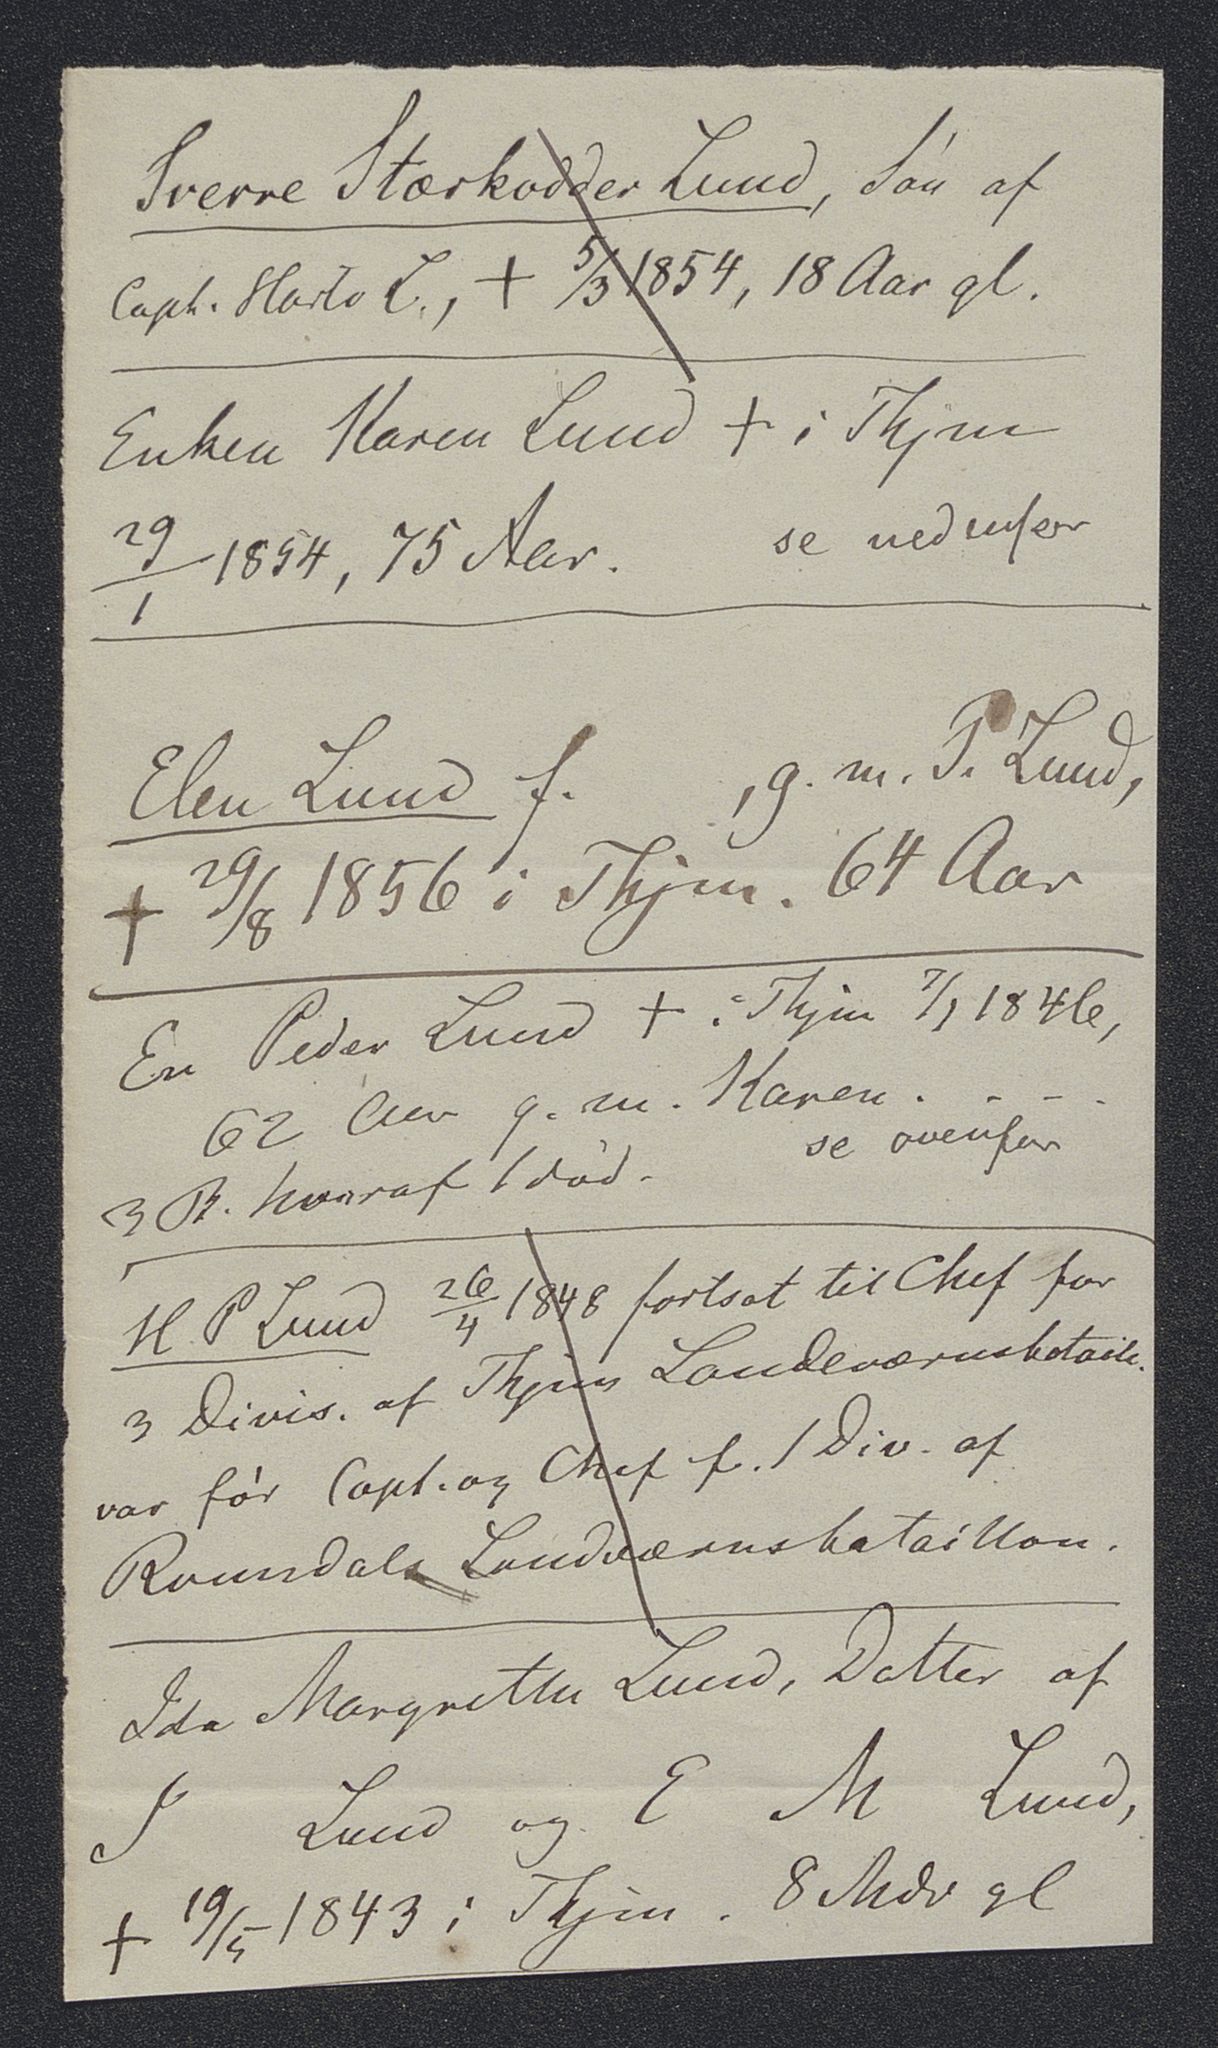 Sverre Stærkodder Lund, Søn af
Capt. Harto L., + 5/3 1854, 18 Aar gl.
Enken Karen Lund + i Thjm
29/1 1854, 75 Aar. se nedenfor
Elen Lund f. , g. m. P. Lund,
+ 29/8 1856 i Thjm. 64 Aar
En Peder Lund + i Thjm 7/1 1846,
62 Aar g. m. Karen . . - .
se ovenfor
3 B. hvoraf 1 død.
H P Lund 26/4 1848 fortsat til Chef for
3 Divis. af Thjms Landeværnsbataill.
var før Capt. og Chef f. 1 Div. af
Romsdals Landeværnsbataillon.
Ida Margrethe Lund, Datter af
J Lund og E M Lund,
+ 19/5 1843 i Thjm. 8 Mdr gl